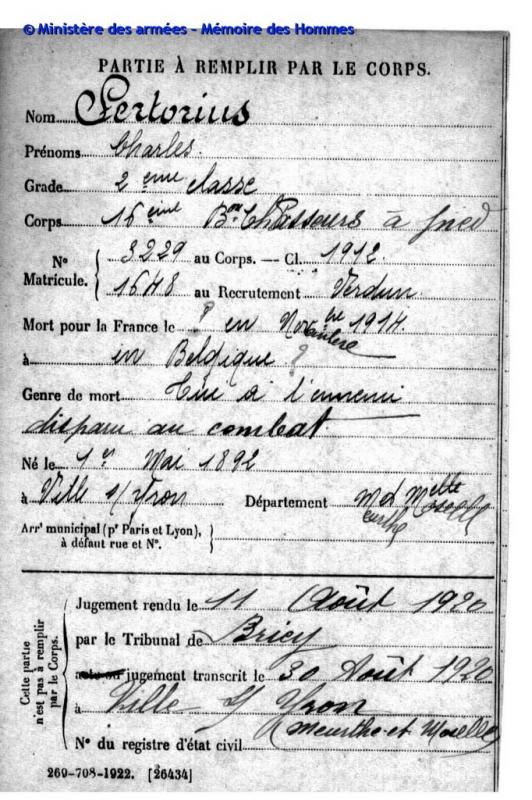 © Ministère des armées - Mémoire des Hommes
PARTIE À REMPLIR PAR LE CORPS.
Nom Sertorius
Prénoms Charles
Grade 2 ème classe
Corps 16 ème Bon Chasseurs à pied
N° Matricule. { 3229 au Corps. — Cl. 1912.
1648 au Recrutement Verdun
Mort pour la France le ? en Novembre 1914.
à en Belgique ?
Genre de mort Tué à l'ennemi
disparu au combat
Né le 1er Mai 1892
à Ville s/ Yron Département M et Mselle
Meurthe Moselle
Arrt municipal (pr Paris et Lyon), à défaut rue et N°. }
Cette partie n'est pas à remplir par le Corps.
Jugement rendu le 11 Août 1920
par le Tribunal de Briey
acte ou jugement transcrit le 30 Août 1920
à Ville s/ Yron
(Meurthe et Moselle)
N° du registre d'état civil
269-708-1922. [26434]